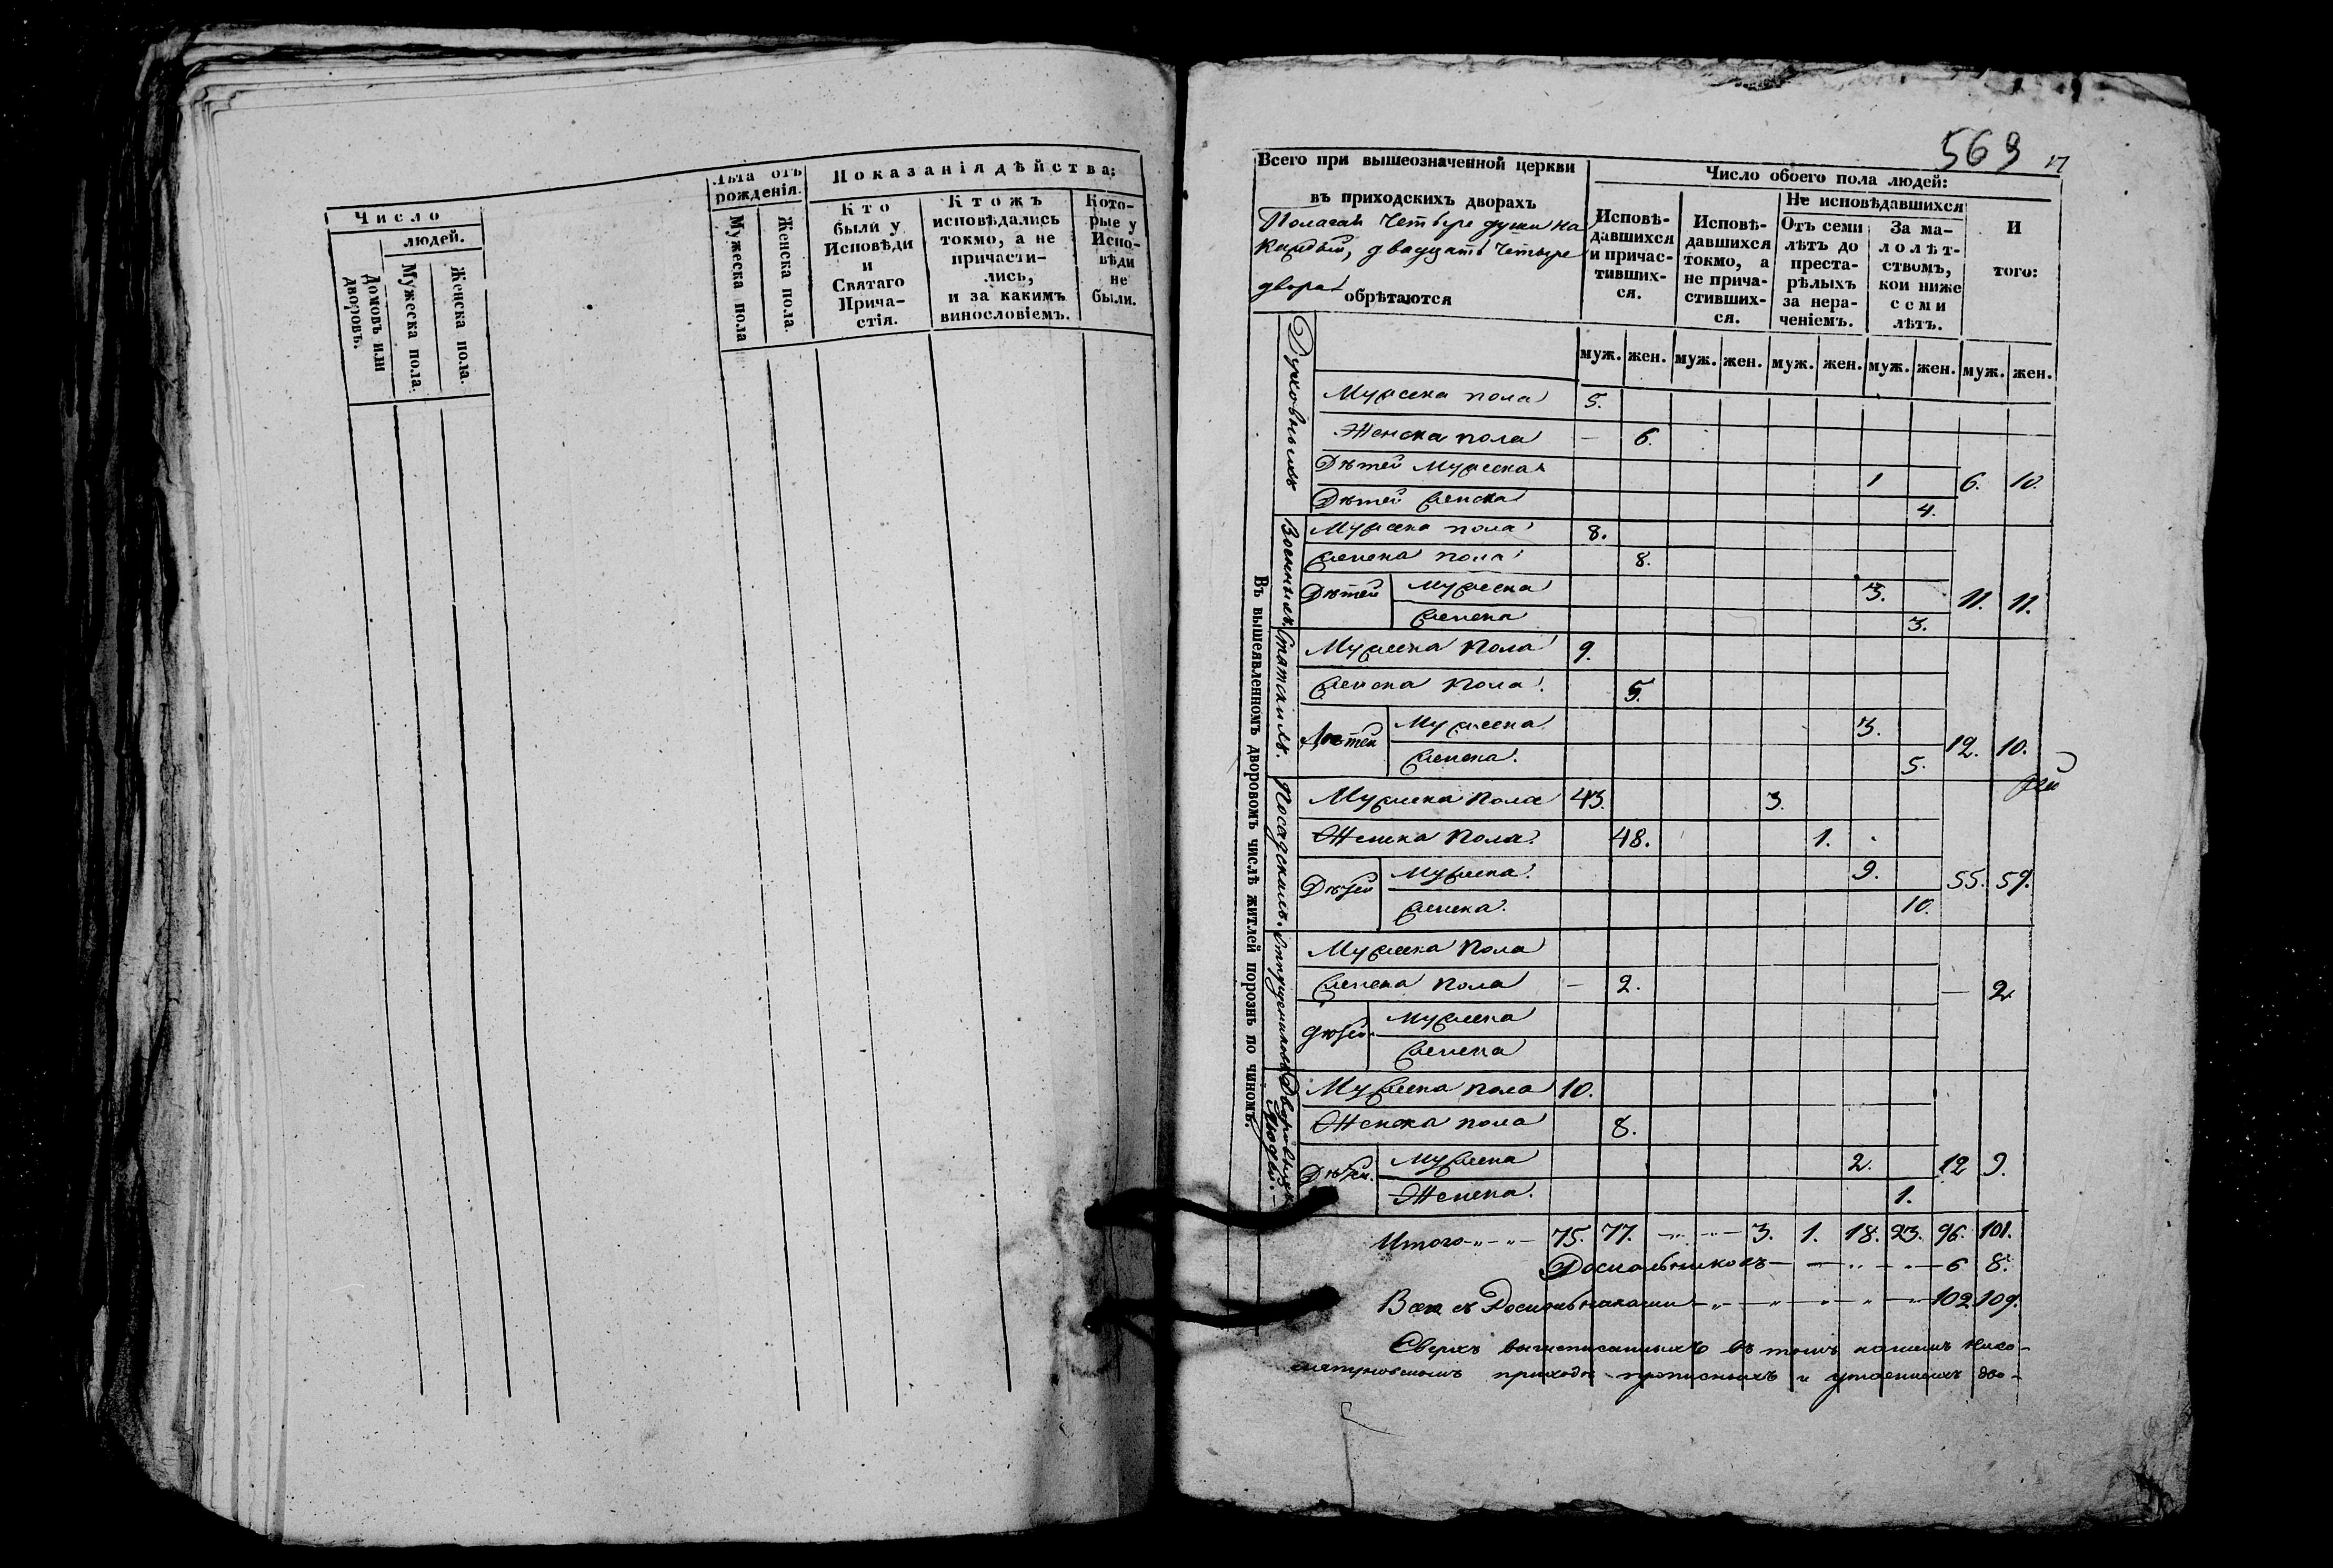 Число
людей.
Домовъ или дворовъ.
Мужеска пола.
Женска пола.
Лѣта отъ рожденія.
Мужеска пола
Женска пола.
Показанія дѣйства:
Кто были у Исповѣди и Святаго Прича-
стія.
Ктожъ исповѣдались токмо, а не причасти-
лись, и за какимъ винословіемъ.
Кото-
рые у Испо-
вѣди не были.
569
17
Всего при вышеозначенной церкви
въ приходскихъ дворахъ
Полагая четыре души на
каждый, двадцать четыре
двора обрѣтаются
Число обоего пола людей:
Исповѣ-
давшихся
и причас-
тивших-
ся.
Исповѣ-
давшихся
токмо, а
не прича-
стивших-
ся.
Не исповѣдавшихся
Отъ семи
лѣтъ до
преста-
рѣлыхъ
за нера-
ченіемъ.
За ма-
лолѣт-
ствомъ,
кои ниже
семи
лѣтъ.
И
того:
муж. жен. муж. жен. муж. жен. муж. жен. муж. жен.
Въ вышеявленномъ дворовомъ числѣ житлей порознь по чиномъ.
Духовныхъ
Мужеска пола 5.
Женска пола — 6.
Дѣтей Мужеска 1 6. 10.
Дѣтей Женска 4.
Военныхъ.
Мужеска пола 8.
Женска пола 8.
Дѣтей Мужеска 3. 11. 11.
Женска 3.
Статскихъ.
Мужеска Пола 9.
Женска Пола. 5.
Дѣтей Мужеска 3. 12. 10.
Женска. 5.
Посадскихъ.
Мужеска Пола 43. 3.
Женска Пола. 48. 1.
Дѣтей Мужеска. 9. 55. 59.
Женска. 10.
Мужеска Пола
Женска Пола — 2. — 2
Дѣтей Мужеска
Женска
Дворовыхъ
Людей.
Мужеска пола 10.
Женска пола 8.
Дѣтей. Мужеска 2. 12 9.
Женска. 1.
Итого 75. 77. 3. 1. 18. 23. 96. 101.
Раскольниковъ 6 8.
Всего съ Раскольниками 102. 109.
Сверхъ вышеписанныхъ въ томъ
приходѣ прописныхъ и утаенныхъ дво-